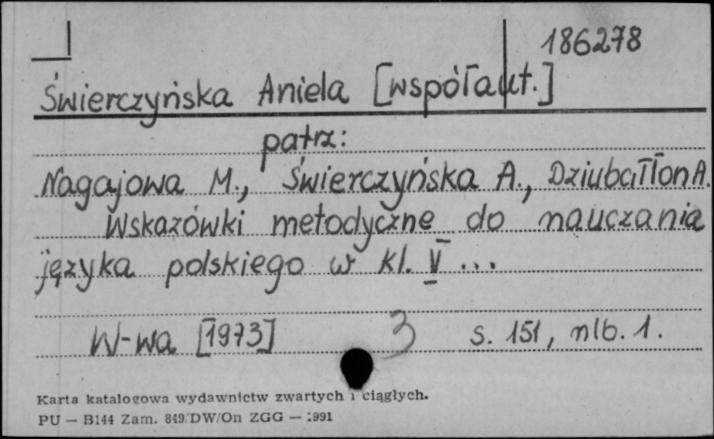 186278
Świerczyńska Aniela [współaut.]
patrz:
Nagajowa M., Świerczyńska A., Dziubałłon A.
Wskazówki metodyczne do nauczania
języka polskiego w kl. V ...
W-wa [1973] 3 s. 151, nlb. 1.
Karta katalogowa wydawnictw zwartych i ciągłych.
PU — B144 Zam. 849/DW/On ZGG — 1991